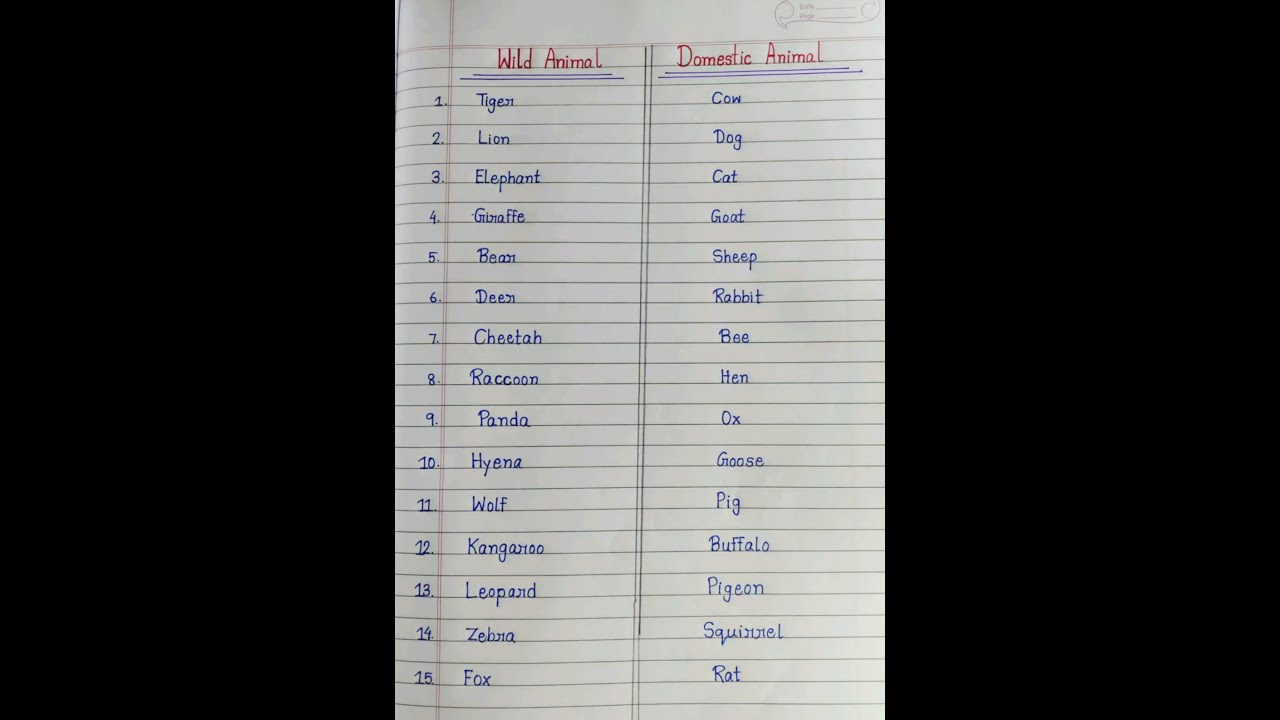 Date
Page
Wild Animal Domestic Animal
1. Tiger Cow
2. Lion Dog
3. Elephant Cat
4. Giraffe Goat
5. Bear Sheep
6. Deer Rabbit
7. Cheetah Bee
8. Raccoon Hen
9. Panda Ox
10. Hyena Goose
11. Wolf Pig
12. Kangaroo Buffalo
13. Leopard Pigeon
14. Zebra Squirrel
15. Fox Rat